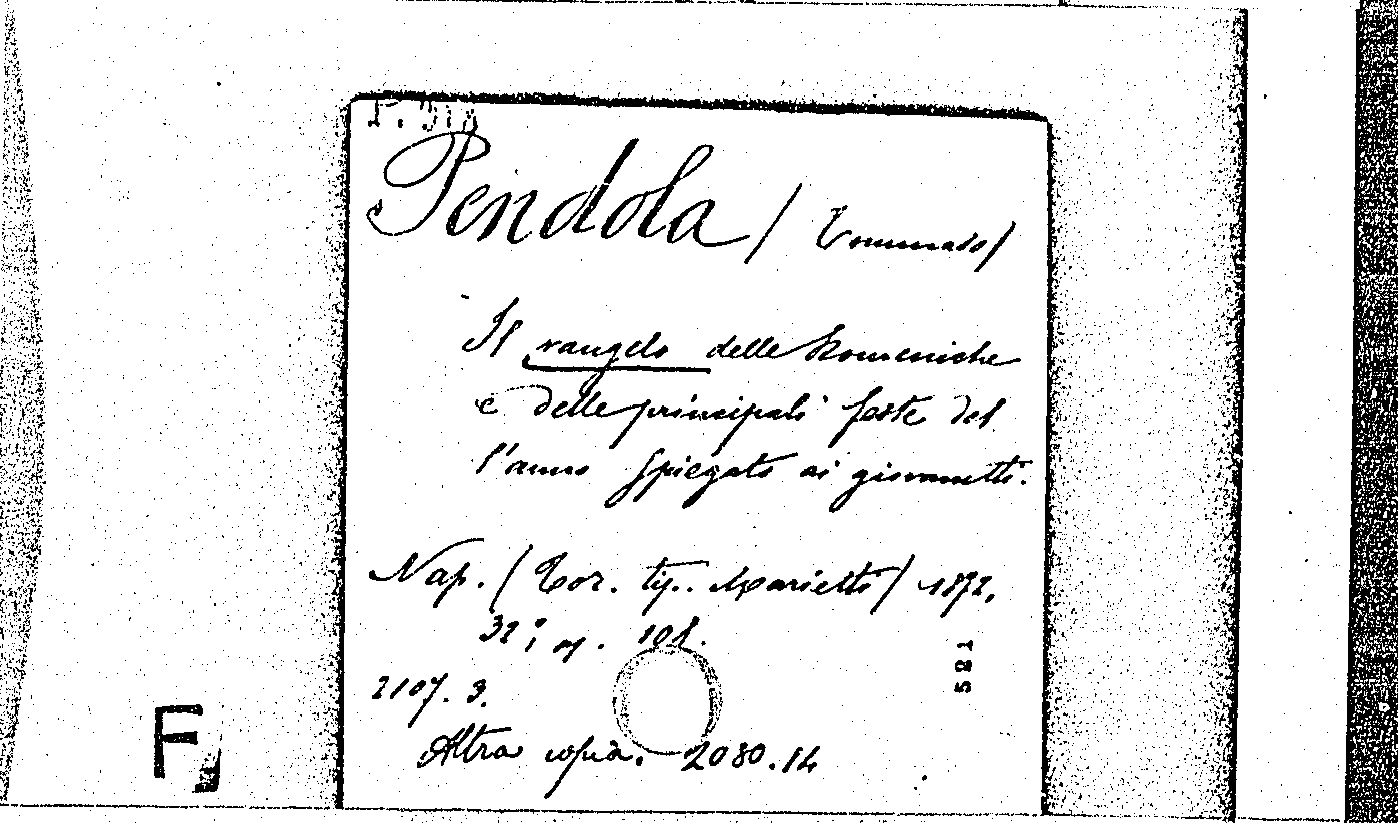 Pendola / Tommaso/
Il vangelo delle Domeniche
e delle principali feste del
l'anno spiegato ai giovanetti.
Nap. (Tor. tip. Marietti) 1872.
32°; 101.
2107. 3.
Altra copia. 2080.14
521
F